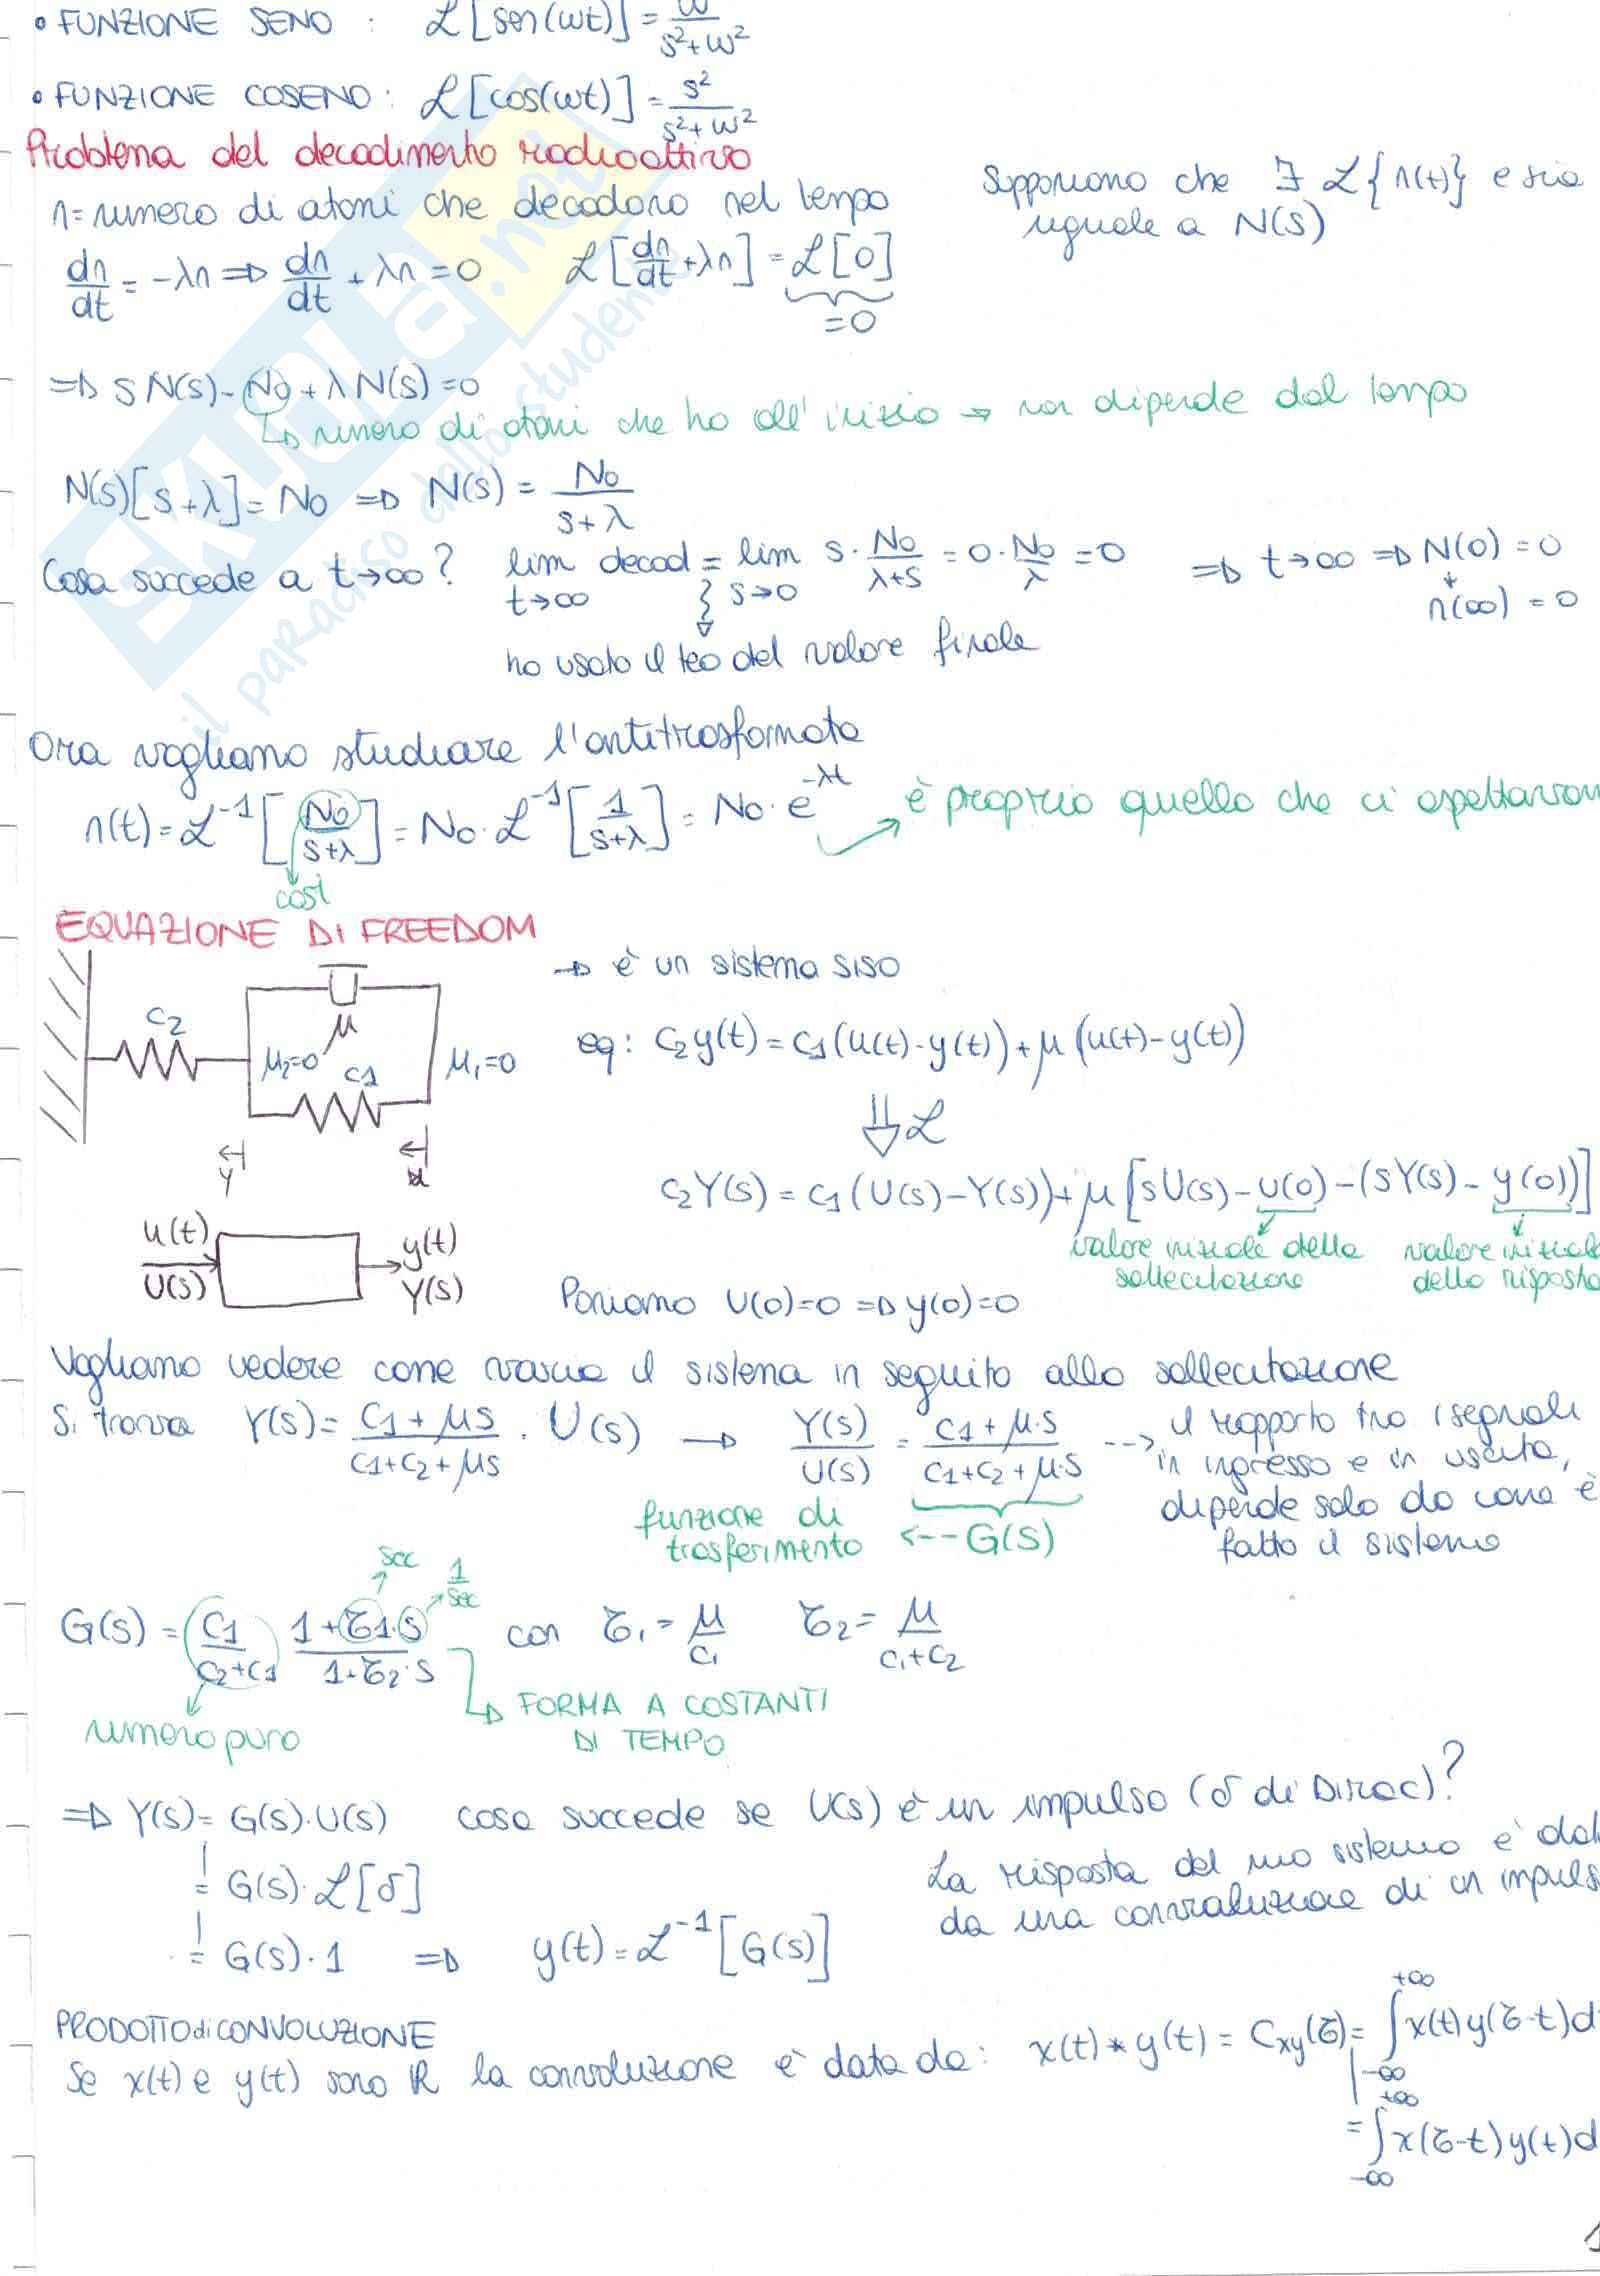 • FUNZIONE SENO : ℒ[sen(ωt)] = ω/(s²+ω²)
• FUNZIONE COSENO : ℒ[cos(ωt)] = s²/(s²+ω²)
Problema del decadimento radioattivo
n = numero di atomi che decadono nel tempo
Supponiamo che ∃ ℒ{n(t)} e sia
uguale a N(s)
dn/dt = -λn => dn/dt + λn = 0 ℒ[dn/dt + λn] = ℒ[0]
=0
=> s N(s) - No + λN(s) = 0
↳ numero di atomi che ho all'inizio → non dipende dal tempo
N(s)[s+λ] = No => N(s) = No/(s+λ)
Cosa succede a t→∞? lim t→∞ decad = lim s→0 s · No/(λ+s) = 0 · No/λ = 0 => t→∞ => N(0) = 0
n(∞) = 0
ho usato il teo del valore finale
Ora vogliamo studiare l'antitrasformata
n(t) = ℒ⁻¹[No/(s+λ)] = No · ℒ⁻¹[1/(s+λ)] = No · e^-λt → è proprio quello che ci aspettavam
cost
EQUAZIONE DI FREEDOM
→ è un sistema SISO
C2
μ
μ2=0
C1
μ1=0
eq: C2 y(t) = C1 (u(t) - y(t)) + μ (u(t) - y(t))
⇓ ℒ
y
u
C2 Y(s) = C1 (U(s) - Y(s)) + μ [sU(s) - u(0) - (sY(s) - y(0))]
valore iniziale della sollecitazione
valore iniziale della risposta
u(t)
U(s)
y(t)
Y(s)
Poniamo U(0)=0 => y(0)=0
Vogliamo vedere come varia il sistema in seguito alla sollecitazione
Si trova Y(s) = (C1 + μs)/(C1+C2+μs) · U(s) → Y(s)/U(s) = (C1 + μ·s)/(C1+C2+μ·s) --→ il rapporto tra i segnali
in ingresso e in uscita,
dipende solo da come è
fatto il sistema
funzione di
trasferimento <-- G(s)
sec
1/sec
G(s) = C1/(C2+C1) (1+τ1·s)/(1+τ2·s) con τ1 = μ/C1 τ2 = μ/(C1+C2)
numero puro
↳ FORMA A COSTANTI
DI TEMPO
=> Y(s) = G(s)·U(s) cosa succede se U(s) è un impulso (δ di Dirac)?
= G(s)·ℒ[δ]
La risposta del mio sistema è dat
da una convoluzione di un impuls
= G(s)·1 => y(t) = ℒ⁻¹[G(s)]
PRODOTTO di CONVOLUZIONE
Se x(t) e y(t) sono ℝ la convoluzione è data da: x(t) * y(t) = Cxy(τ) = ∫_-∞^+∞ x(t) y(τ-t)d
= ∫_-∞^+∞ x(τ-t) y(t)d
SKUOLA.net
il paradiso dello studente